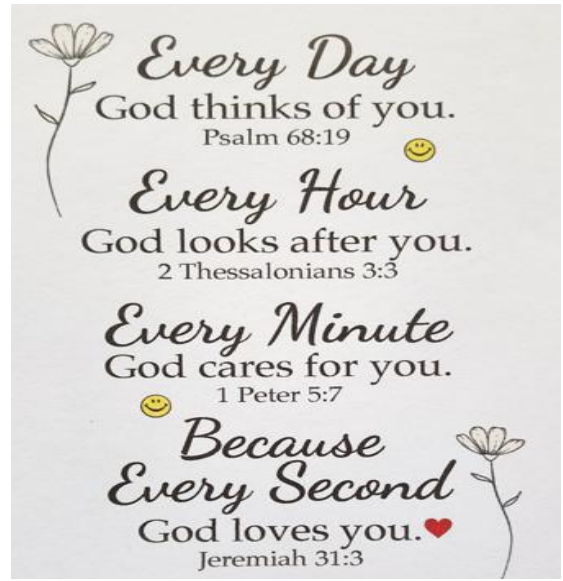 Every Day
God thinks of you.
Psalm 68:19
Every Hour
God looks after you.
2 Thessalonians 3:3
Every Minute
God cares for you.
1 Peter 5:7
Because
Every Second
God loves you.
Jeremiah 31:3